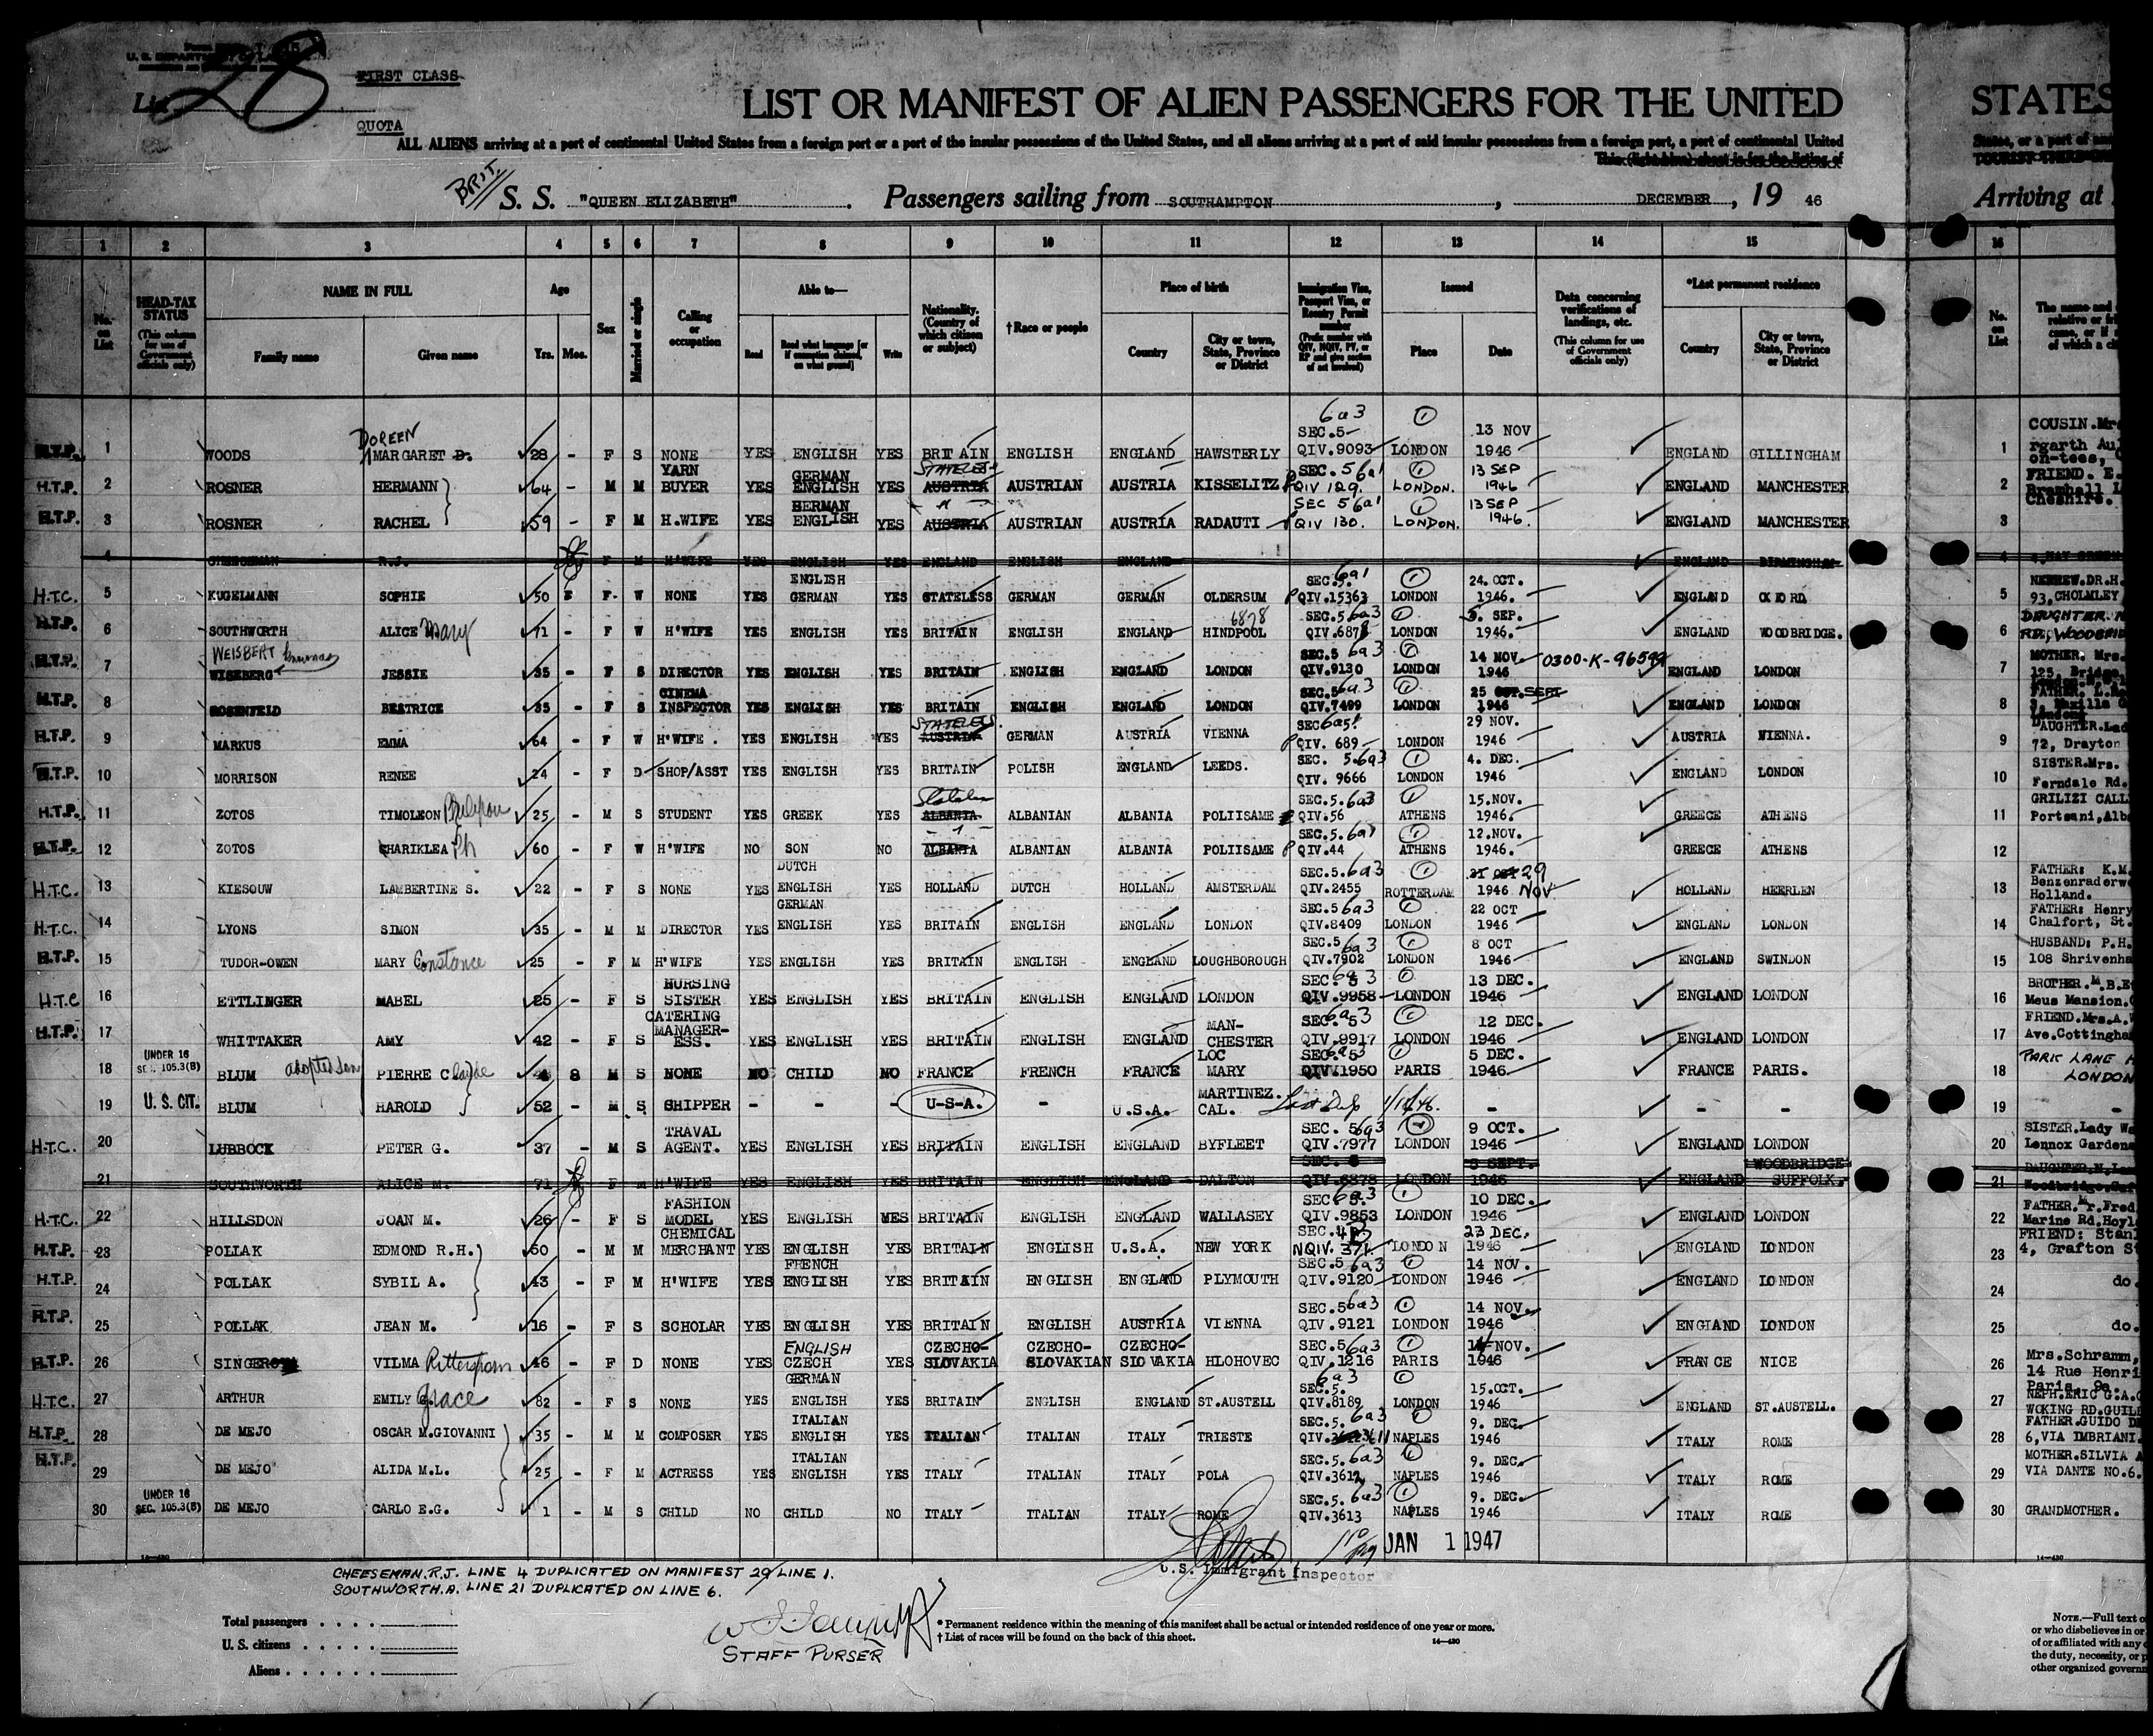 28
FIRST CLASS
QUOTA
LIST OR MANIFEST OF ALIEN PASSENGERS FOR THE UNITED STATES
ALL ALIENS arriving at a port of continental United States from a foreign port or a port of the insular possessions of the United States, and all aliens arriving at a port of said insular possessions from a foreign port, a port of continental United
This (light blue) sheet is for the listing of
BRIT. S. S. "QUEEN ELIZABETH" Passengers sailing from SOUTHAMPTON, DECEMBER, 19 46 Arriving at
1 2 3 4 5 6 7 8 9 10 11 12 13 14 15 16
No. on List
HEAD-TAX STATUS (This column for use of Government officials only)
NAME IN FULL Family name Given name
Age Yrs. Mos.
Sex
Married or single
Calling or occupation
Able to— Read Read what language [or if exemption claimed, on what ground] Write
Nationality. (Country of which citizen or subject)
†Race or people
Place of birth Country City or town, State, Province or District
Immigration Visa, Passport Visa, or Reentry Permit number (Prefix number with QIV, NQIV, PV, or RP and give section of act involved)
Issued Place Date
Data concerning verifications of landings, etc. (This column for use of Government officials only)
*Last permanent residence Country City or town, State, Province or District
No. on List
The name and
H.T.P. 1 WOODS DOREEN MARGARET D. 28 - F S NONE YES ENGLISH YES BRITAIN ENGLISH ENGLAND HAWSTERLY 6a3 SEC.5 QIV.9093 LONDON 13 NOV 1946 ENGLAND GILLINGHAM 1 COUSIN.
H.T.P. 2 ROSNER HERMANN 64 - M M YARN BUYER YES GERMAN ENGLISH YES STATELESS AUSTRIA AUSTRIAN AUSTRIA KISSELITZ SEC. 5 6a1 QIV 129. LONDON. 13 SEP 1946 ENGLAND MANCHESTER 2 FRIEND.
H.T.P. 3 ROSNER RACHEL 59 - F M H.WIFE YES GERMAN ENGLISH YES " AUSTRIA AUSTRIAN AUSTRIA RADAUTI SEC 5 6a1 QIV 130. LONDON. 13 SEP 1946. ENGLAND MANCHESTER 3 Cheshire.
4 CHEESEMAN R.J. F M H'WIFE YES ENGLISH YES ENGLAND ENGLISH ENGLAND ENGLAND BIRMINGHAM 4
H.T.C. 5 KUGELMANN SOPHIE 50 F. W NONE YES ENGLISH GERMAN YES STATELESS GERMAN GERMAN OLDERSUM SEC.5. 6a1 QIV.15363 LONDON 24. OCT. 1946. ENGLAND OXFORD 5 NEPHEW.DR.H. 93,CHOLMLEY
H.T.P. 6 SOUTHWORTH ALICE Mary 71 - F W H'WIFE YES ENGLISH YES BRITAIN ENGLISH ENGLAND HINDPOOL 6878 SEC.5 6a3 QIV.687 LONDON SEP. 1946. ENGLAND WOODBRIDGE. 6 DAUGHTER.
H.T.P. 7 WEISBERT WISEBERG JESSIE 35 - F S DIRECTOR YES ENGLISH YES BRITAIN ENGLISH ENGLAND LONDON SEC.5 6a3 QIV.9130 LONDON 14 NOV. 1946 0300-K-96599 ENGLAND LONDON 7 MOTHER. Mrs.
H.T.P. 8 ROSENFELD BEATRICE 35 - F S CINEMA INSPECTOR YES ENGLISH YES BRITAIN ENGLISH ENGLAND LONDON SEC.5 6a3 QIV.7499 LONDON 25 SEPT 1946 ENGLAND LONDON 8 FATHER.
H.T.P. 9 MARKUS EMMA 64 - F W H'WIFE. YES ENGLISH YES STATELESS. AUSTRIA GERMAN AUSTRIA VIENNA SEC 6a5! QIV. 689 LONDON 29 NOV. 1946 AUSTRIA VIENNA. 9 DAUGHTER.Lad 72, Drayton
H.T.P. 10 MORRISON RENEE 24 - F D SHOP/ASST YES ENGLISH YES BRITAIN POLISH ENGLAND LEEDS. SEC. 5.6a3 QIV. 9666 LONDON 4. DEC. 1946 ENGLAND LONDON 10 SISTER.Mrs. Ferndale Rd.
H.T.P. 11 ZOTOS TIMOLEON 25 - M S STUDENT YES GREEK YES Stateless ALBANIA ALBANIAN ALBANIA POLIISAME SEC.5.6a3 QIV.56 ATHENS 15.NOV. 1946. GREECE ATHENS 11 GRILIZI CALL Portsani,Alb
H.T.P. 12 ZOTOS CHARIKLEA Ph 60 - F W H'WIFE NO SON NO ALBANIA ALBANIAN ALBANIA POLIISAME SEC.5.6a1 QIV.44 ATHENS 12.NOV. 1946. GREECE ATHENS 12
H.T.C. 13 KIESOUW LAMBERTINE S. 22 - F S NONE YES DUTCH ENGLISH GERMAN YES HOLLAND DUTCH HOLLAND AMSTERDAM SEC.5.6a3 QIV.2455 ROTTERDAM 29 NOV 1946 HOLLAND HEERLEN 13 FATHER: K.M. Benzenraderw Holland.
H.T.C. 14 LYONS SIMON 35 - M M DIRECTOR YES ENGLISH YES BRITAIN ENGLISH ENGLAND LONDON SEC.5 6a3 QIV.8409 LONDON 22 OCT 1946 ENGLAND LONDON 14 FATHER: Henry Chalfort, St.
H.T.P. 15 TUDOR-OWEN MARY Constance 25 - F M H'WIFE YES ENGLISH YES BRITAIN ENGLISH ENGLAND LOUGHBOROUGH SEC.5 6a3 QIV.7902 LONDON 8 OCT 1946 ENGLAND SWINDON 15 HUSBAND: P.H. 108 Shrivenha
H.T.C 16 ETTLINGER MABEL 25 - F S NURSING SISTER YES ENGLISH YES BRITAIN ENGLISH ENGLAND LONDON SEC. 5 6a3 QIV.9958 LONDON 13 DEC. 1946 ENGLAND LONDON 16 BROTHER.M.B.E Meus Mansion.
H.T.P. 17 WHITTAKER AMY 42 - F S CATERING MANAGER-ESS. YES ENGLISH YES BRITAIN ENGLISH ENGLAND MAN-CHESTER SEC. 5 6a3 QIV.9917 LONDON 12 DEC. 1946 ENGLAND LONDON 17 FRIEND.Mrs.A. Ave.Cottingha
UNDER 16 SEC. 105.3(B) 18 BLUM adopted son PIERRE Claude 4 8 M S NONE NO CHILD NO FRANCE FRENCH FRANCE LOC MARY SEC. 5 6a3 QIV.1950 PARIS 5 DEC. 1946 FRANCE PARIS. 18 PARK LANE LONDON
U. S. CIT. 19 BLUM HAROLD 52 - M S SHIPPER - - - U-S-A. - U.S.A. MARTINEZ. CAL. - - - 19 -
H.T.C. 20 LUBBOCK PETER G. 37 - M S TRAVAL AGENT. YES ENGLISH YES BRITAIN ENGLISH ENGLAND BYFLEET SEC. 5 6a3 QIV.7977 LONDON 9 OCT. 1946 ENGLAND LONDON 20 SISTER.Lady Wa Lennox Gardens
21 SOUTHWORTH ALICE M. 71 F M H'WIFE YES ENGLISH YES BRITAIN ENGLISH ENGLAND DALTON SEC. 5 QIV.6878 LONDON 3 SEPT. 1946 ENGLAND WOODBRIDGE SUFFOLK. 21
H.T.C. 22 HILLSDON JOAN M. 26 - F S FASHION MODEL YES ENGLISH YES BRITAIN ENGLISH ENGLAND WALLASEY SEC 5 6a3 QIV.9853 LONDON 10 DEC. 1946 ENGLAND LONDON 22 FATHER Mr.Fred Marine Rd.Hoyl
H.T.P. 23 POLLAK EDMOND R.H. 50 - M M CHEMICAL MERCHANT YES ENGLISH YES BRITAIN ENGLISH U.S.A. NEW YORK SEC.4B NQIV. 371. LONDON 23 DEC. 1946 ENGLAND LONDON 23 FRIEND: Stan 4, Grafton St
H.T.P. 24 POLLAK SYBIL A. 43 - F M H'WIFE YES FRENCH ENGLISH YES BRITAIN ENGLISH ENGLAND PLYMOUTH SEC.5 6a3 QIV.9120 LONDON 14 NOV. 1946 ENGLAND LONDON 24 do.
H.T.P. 25 POLLAK JEAN M. 16 - F S SCHOLAR YES ENGLISH YES BRITAIN ENGLISH AUSTRIA VIENNA SEC.5 6a3 QIV.9121 LONDON 14 NOV. 1946 ENGLAND LONDON 25 do.
H.T.P. 26 SINGER VILMA 46 - F D NONE YES ENGLISH CZECH GERMAN YES CZECHO-SLOVAKIA CZECHO-SLOVAKIAN CZECHO-SLOVAKIA HLOHOVEC SEC.5 6a3 QIV.1216 PARIS 14 NOV. 1946 FRANCE NICE 26 Mrs.Schramm, 14 Rue Henri Paris. 9e.
H.T.C. 27 ARTHUR EMILY G. Grace 82 - F S NONE YES ENGLISH YES BRITAIN ENGLISH ENGLAND ST.AUSTELL 6a3 SEC.5. QIV.8189 LONDON 15.OCT. 1946 ENGLAND ST.AUSTELL. 27 NEPH.ERIC G.A. WOKING RD.GUIL
H.T.P. 28 DE MEJO OSCAR M.GIOVANNI 35 - M M COMPOSER YES ITALIAN ENGLISH YES ITALIAN ITALIAN ITALY TRIESTE SEC.5. 6a3 QIV.3611 NAPLES 9. DEC. 1946 ITALY ROME 28 FATHER.GUIDO DE 6,VIA IMBRIANI.
H.T.P. 29 DE MEJO ALIDA M.L. 25 - F M ACTRESS YES ITALIAN ENGLISH YES ITALY ITALIAN ITALY POLA SEC.5. 6a3 QIV.3612 NAPLES 9. DEC. 1946 ITALY ROME 29 MOTHER.SILVIA VIA DANTE NO.6.
UNDER 16 SEC. 105.3(B) 30 DE MEJO CARLO E.G. 1 - M S CHILD NO CHILD NO ITALY ITALIAN ITALY ROME SEC.5. 6a3 QIV.3613 NAPLES 9. DEC. 1946 ITALY ROME 30 GRANDMOTHER.
JAN 1 1947
U.S. Immigrant Inspector
CHEESEMAN.R.J. LINE 4 DUPLICATED ON MANIFEST 29 LINE 1.
SOUTHWORTH.A. LINE 21 DUPLICATED ON LINE 6.
Total passengers
U. S. citizens
Aliens
STAFF PURSER
* Permanent residence within the meaning of this manifest shall be actual or intended residence of one year or more.
† List of races will be found on the back of this sheet.
14—430
NOTE.—Full text o
or who disbelieves in or
of or affiliated with any
the duty, necessity, or p
other organized governm